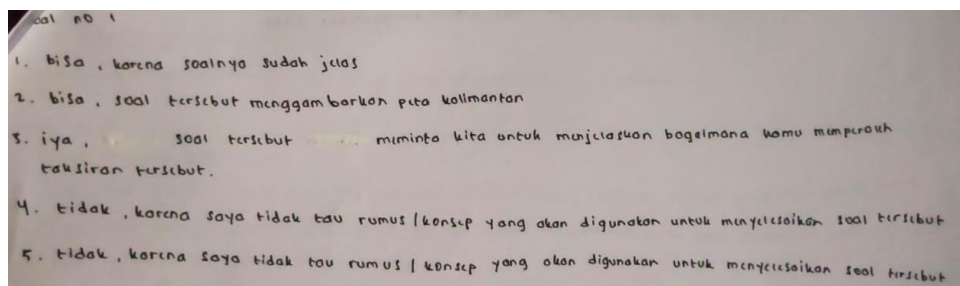 oal no 1
1. bisa, karena soalnya sudah jelas
2. bisa, soal tersebut menggambarkan peta kalimantan
3. iya, soal tersebut meminta kita untuk menjelaskan bagaimana kamu memperoleh
taksiran tersebut.
4. tidak, karena saya tidak tau rumus/konsep yang akan digunakan untuk menyelesaikan soal tersebut
5. tidak, karena saya tidak tau rumus/konsep yang akan digunakan untuk menyelesaikan soal tersebut